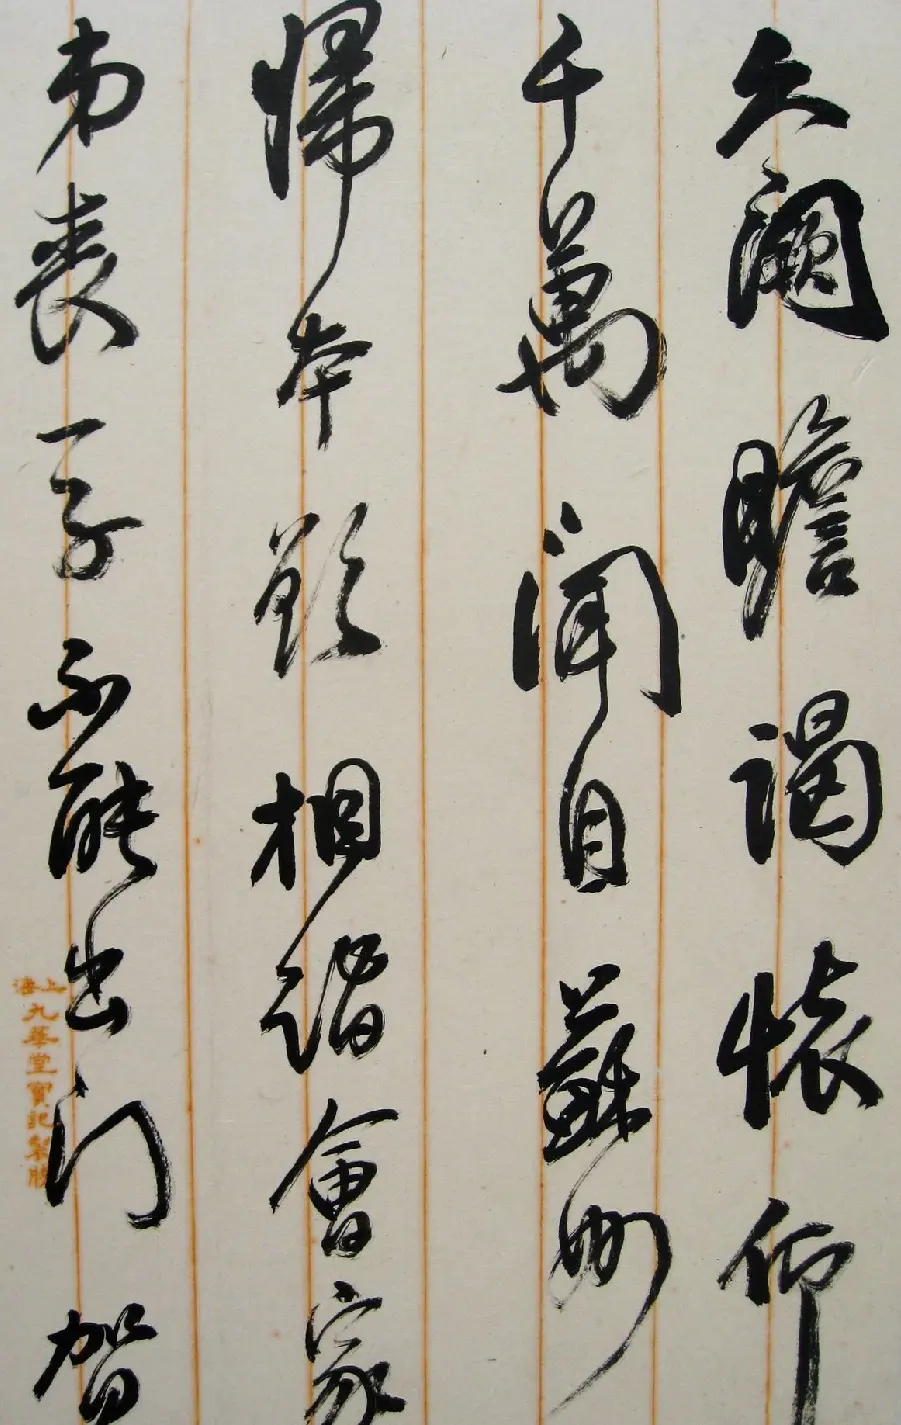 久闕瞻謁懷仰
千萬聞自蘇州
歸本欲相謁會家
弟喪一子不能出門賀
上海九華堂寶記製牋